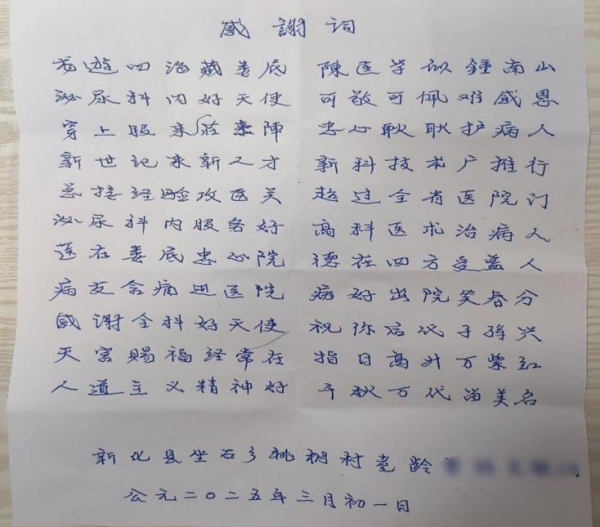 感謝词
龙遊四海藏娄底 陳医学似鍾南山
泌尿科内好天使 可敬可佩难感恩
穿上服来莅象陣 忠心耿耿护病人
新世记来新人才 新科技术广推行
总接经验攻医关 超过全省医院订
泌尿科内服务好 高科医术治病人
医在娄底忠心院 德在四方受益人
病友含痛进医院 病好出院笑春分
感谢全科好天使 祝你后代子孫兴
天宫赐福经常在 指日高升万紫红
人道主义精神好 千秋万代畄美名
新化县坐石乡桃树村党龄
公元二〇二五年三月初一日